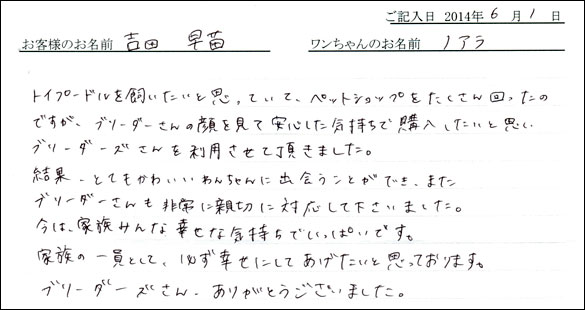 ご記入日 2014年 6 月 1 日
お客様のお名前 吉田 早苗 ワンちゃんのお名前 ノアラ
トイプードルを飼いたいと思っていて、ペットショップをたくさん回ったの
ですが、ブリーダーさんの顔を見て安心した気持ちで購入したいと思い
ブリーダーズさんを利用させて頂きました。
結果、とてもかわいいわんちゃんに出会うことができ、また
ブリーダーさんも非常に親切に対応して下さいました。
今は、家族みんな幸せな気持ちでいっぱいです。
家族の一員として、必ず幸せにしてあげたいと思っております。
ブリーダーズさん、ありがとうございました。